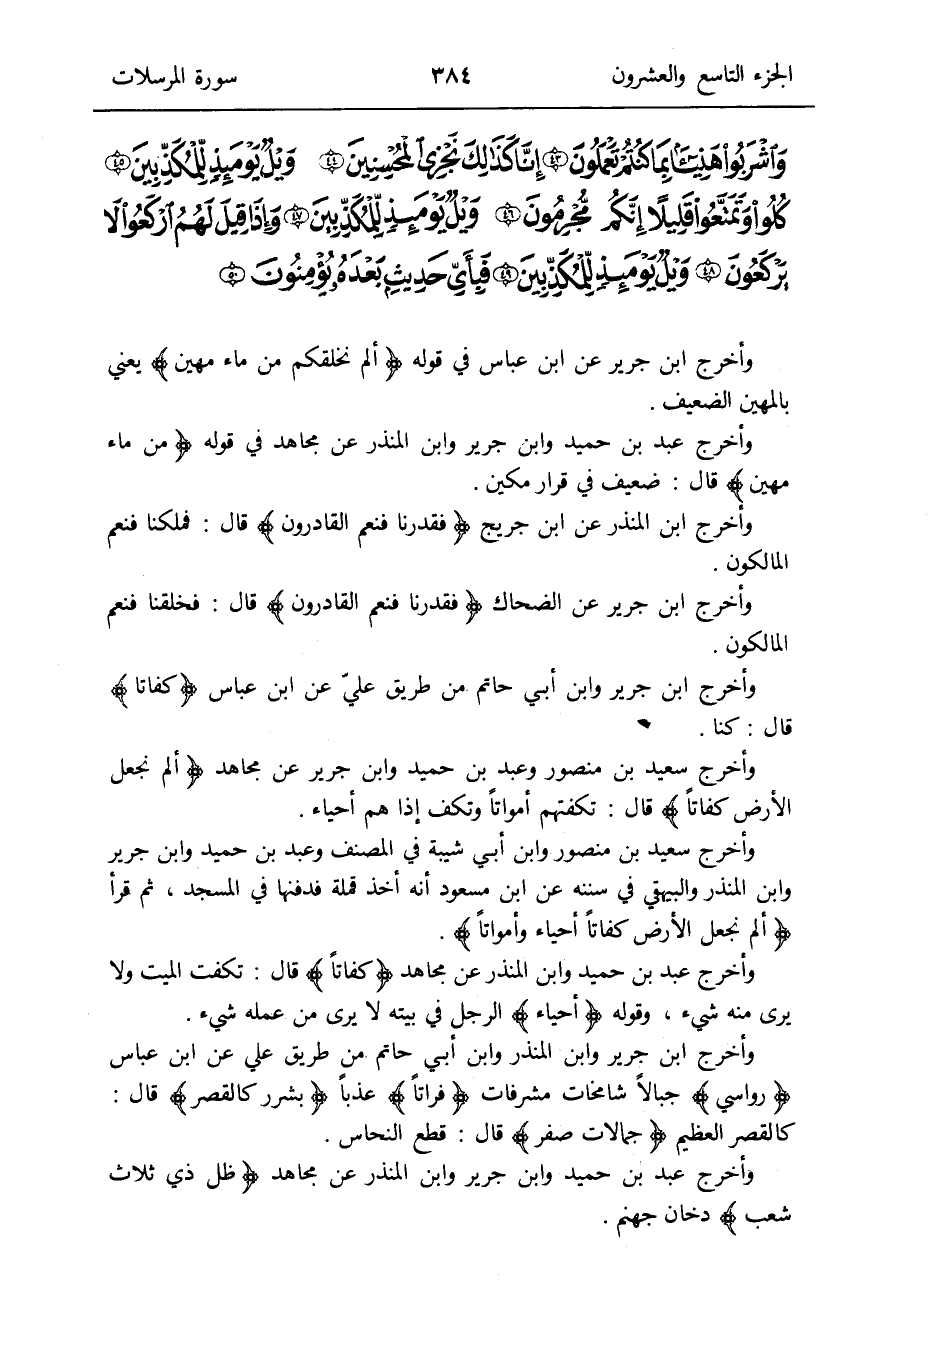 الجزء التاسع والعشرون ٣٨٤ سورة المرسلات
وَٱشْرَبُوا۟ هَنِيٓـًٔۢا بِمَا كُنتُمْ تَعْمَلُونَ ﴿٤٣﴾ إِنَّا كَذَٰلِكَ نَجْزِى ٱلْمُحْسِنِينَ ﴿٤٤﴾ وَيْلٌ يَوْمَئِذٍ لِّلْمُكَذِّبِينَ ﴿٤٥﴾
كُلُوا۟ وَتَمَتَّعُوا۟ قَلِيلًا إِنَّكُم مُّجْرِمُونَ ﴿٤٦﴾ وَيْلٌ يَوْمَئِذٍ لِّلْمُكَذِّبِينَ ﴿٤٧﴾ وَإِذَا قِيلَ لَهُمُ ٱرْكَعُوا۟ لَا
يَرْكَعُونَ ﴿٤٨﴾ وَيْلٌ يَوْمَئِذٍ لِّلْمُكَذِّبِينَ ﴿٤٩﴾ فَبِأَىِّ حَدِيثٍۭ بَعْدَهُۥ يُؤْمِنُونَ ﴿٥٠﴾
وأخرج ابن جرير عن ابن عباس في قوله ﴿ألم نخلقكم من ماء مهين﴾ يعني
بالمهين الضعيف .
وأخرج عبد بن حميد وابن جرير وابن المنذر عن مجاهد في قوله ﴿من ماء
مهين﴾ قال : ضعيف في قرار مكين .
وأخرج ابن المنذر عن ابن جريج ﴿فقدرنا فنعم القادرون﴾ قال : فملكنا فنعم
المالكون .
وأخرج ابن جرير عن الضحاك ﴿فقدرنا فنعم القادرون﴾ قال : فخلقنا فنعم
المالكون .
وأخرج ابن جرير وابن أبي حاتم من طريق عليّ عن ابن عباس ﴿كفاتا﴾
قال : كنا .
وأخرج سعيد بن منصور وعبد بن حميد وابن جرير عن مجاهد ﴿ألم نجعل
الأرض كفاتاً﴾ قال : تكفتهم أمواتاً وتكف إذا هم أحياء .
وأخرج سعيد بن منصور وابن أبي شيبة في المصنف وعبد بن حميد وابن جرير
وابن المنذر والبيهقي في سننه عن ابن مسعود أنه أخذ قملة فدفنها في المسجد ، ثم قرأ
﴿ألم نجعل الأرض كفاتاً أحياء وأمواتاً﴾ .
وأخرج عبد بن حميد وابن المنذر عن مجاهد ﴿كفاتاً﴾ قال : تكفت الميت ولا
يرى منه شيء ، وقوله ﴿أحياء﴾ الرجل في بيته لا يرى من عمله شيء .
وأخرج ابن جرير وابن المنذر وابن أبي حاتم من طريق علي عن ابن عباس
﴿رواسي﴾ جبالاً شامخات مشرفات ﴿فراتاً﴾ عذباً ﴿بشرر كالقصر﴾ قال :
كالقصر العظيم ﴿جمالات صفر﴾ قال : قطع النحاس .
وأخرج عبد بن حميد وابن جرير وابن المنذر عن مجاهد ﴿ظل ذي ثلاث
شعب﴾ دخان جهنم .